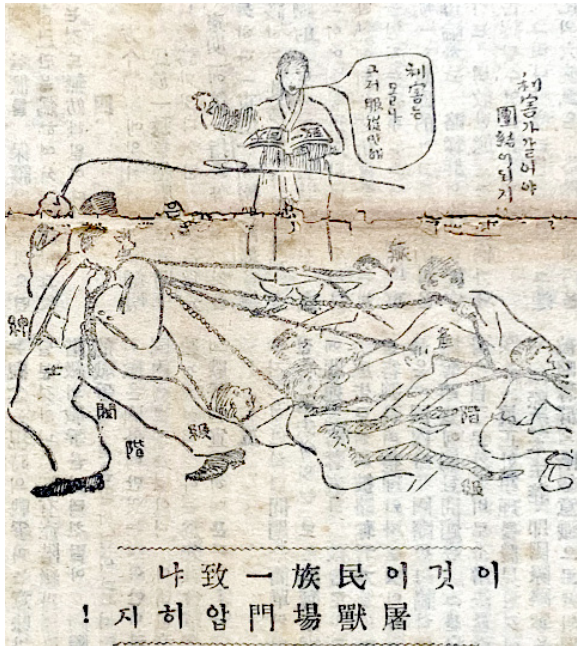 利害가갈어야
團結이되지
利害는
몰나
그저服從만해
紳士閥階級
無産階級
이것이民族一致냐
屠獸場門압히지!